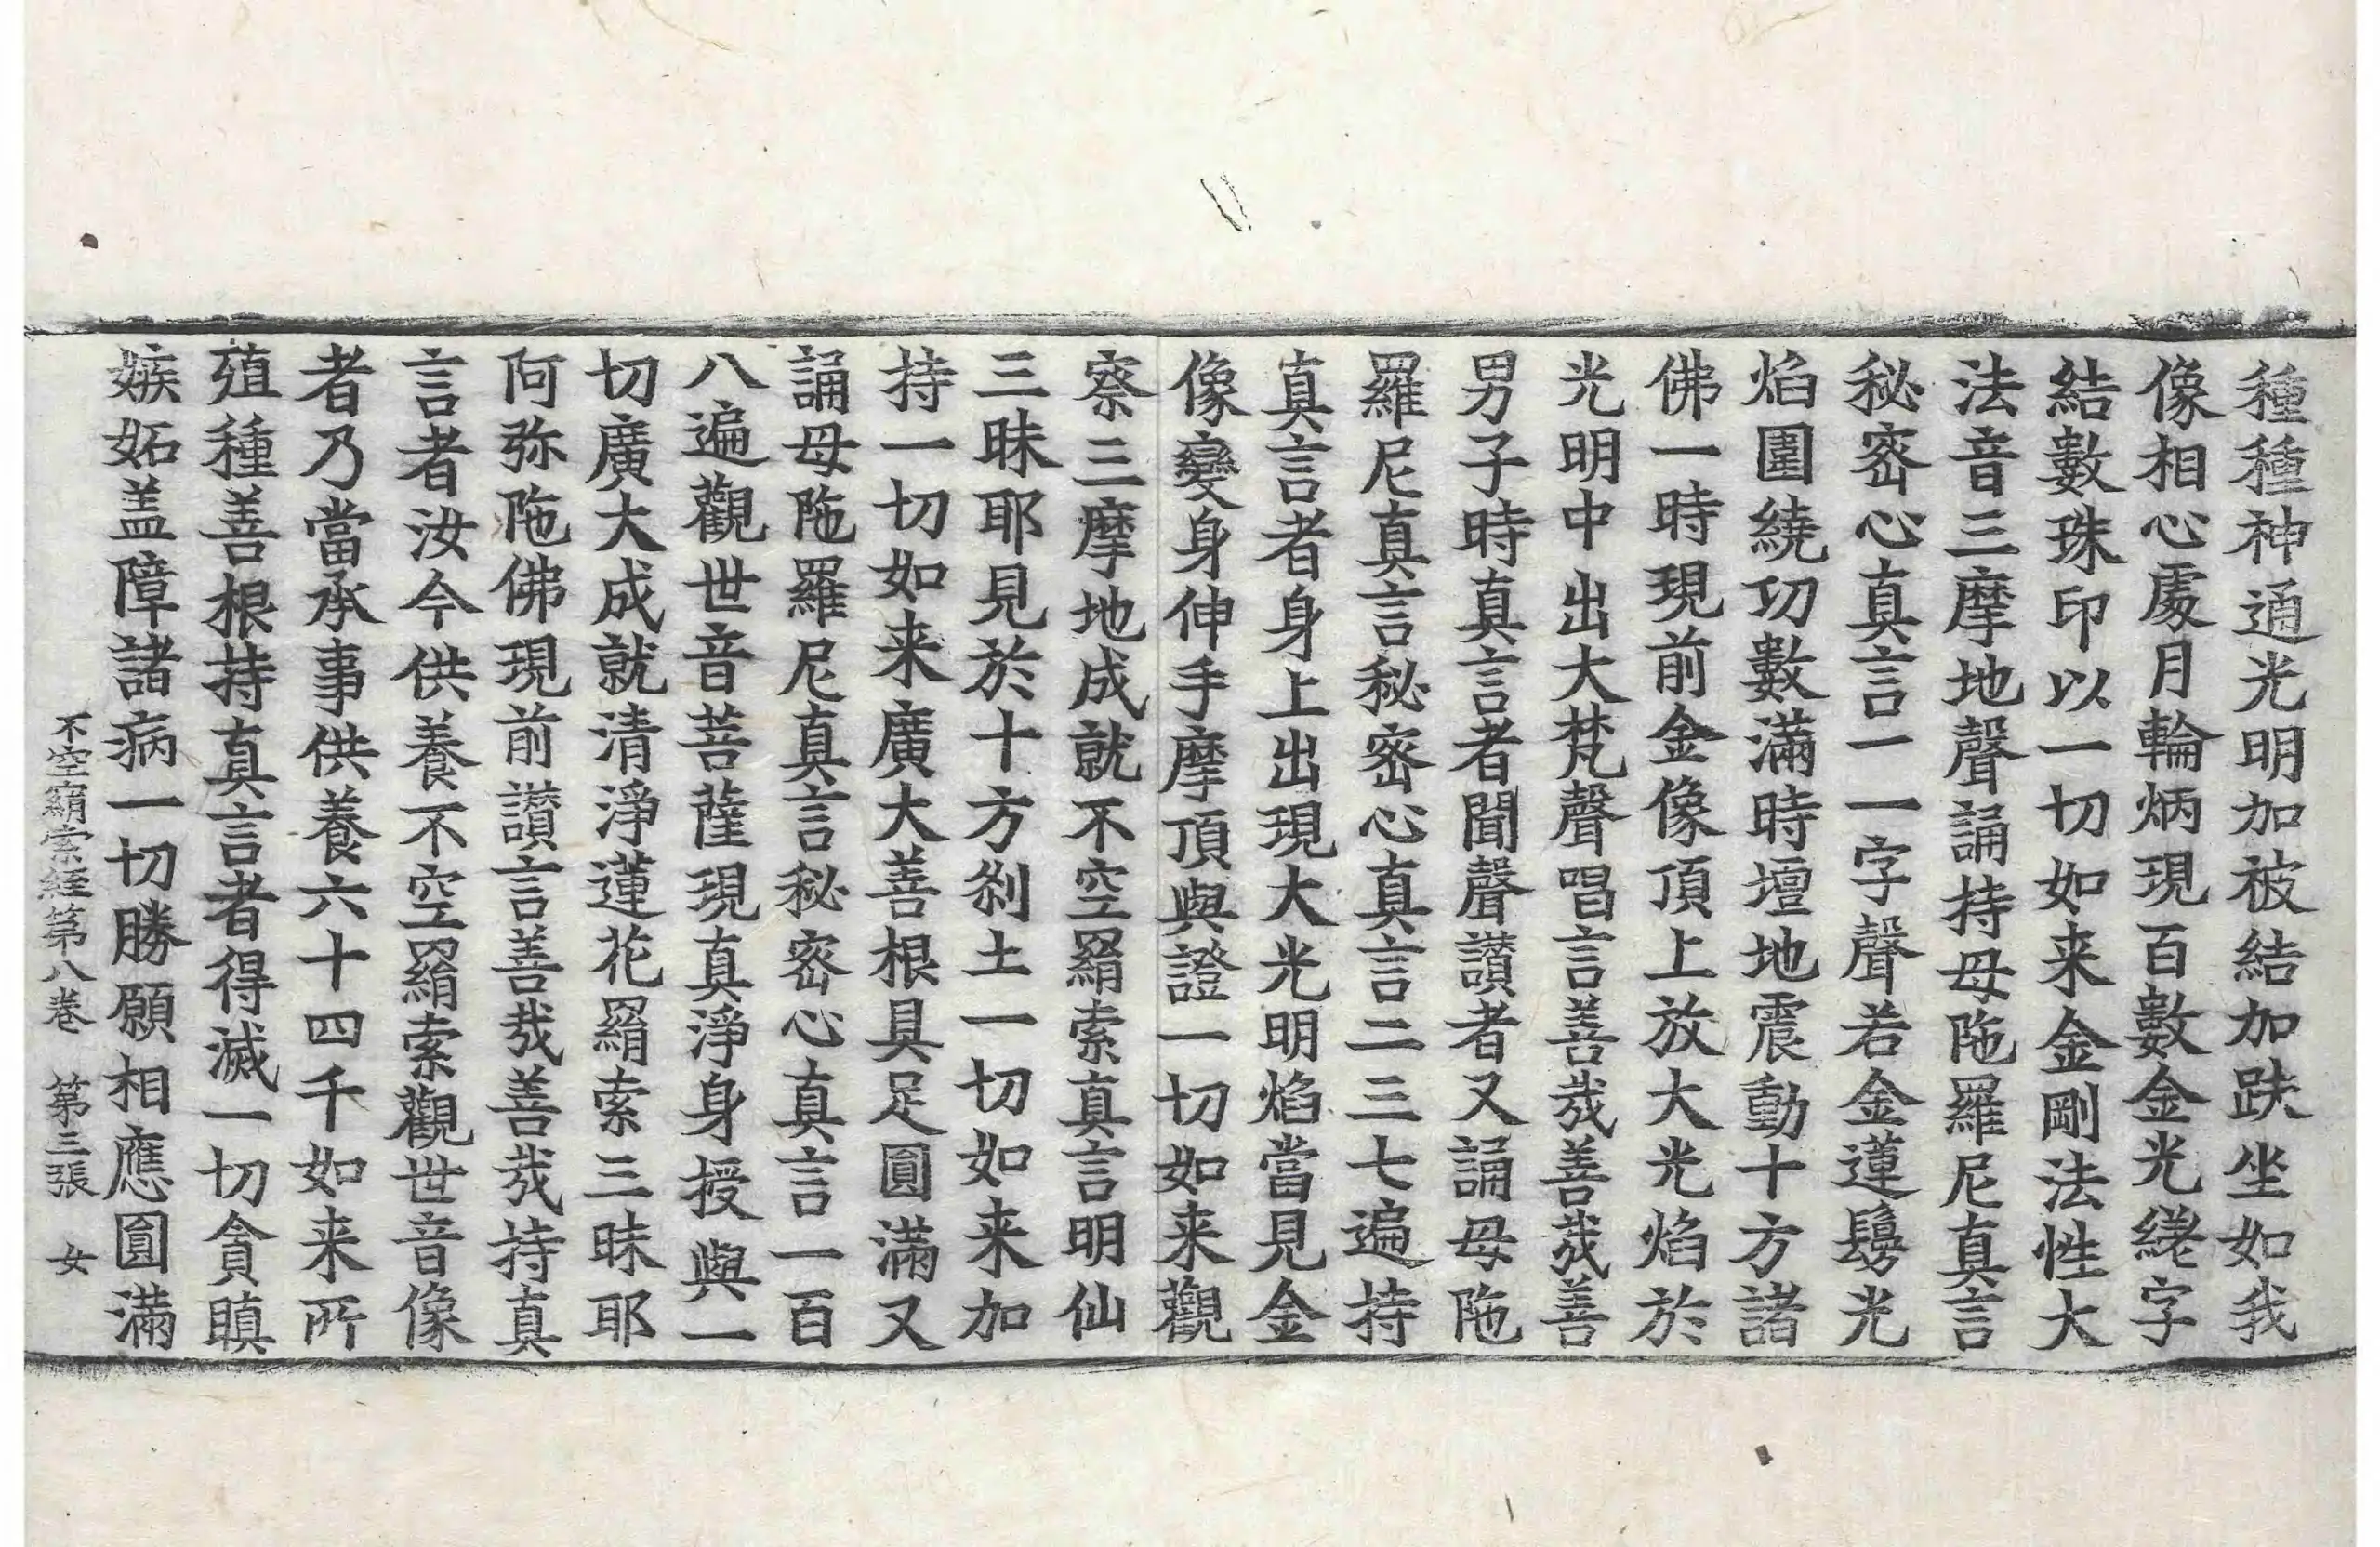 種種神通光明加被結加趺坐如我
像相心處月輪炳現百數金光繞字
結數珠印以一切如来金剛法性大
法音三摩地聲誦持母陁羅尼真言
秘密心真言一一字聲若金蓮鬘光
焰圍繞功數滿時壇地震動十方諸
佛一時現前金像頂上放大光焰於
光明中出大梵聲唱言善㢤善㢤善
男子時真言者聞聲讃者又誦母陁
羅尼真言秘密心真言二三七遍持
真言者身上出現大光明焰當見金
像變身伸手摩頂與證一切如来觀
察三摩地成就不空羂索真言明仙
三昧耶見於十方刹土一切如来加
持一切如来廣大善根具足圓滿又
誦母陁羅尼真言秘密心真言一百
八遍觀世音菩薩現真淨身授與一
切廣大成就清淨蓮花羂索三昧耶
阿弥陁佛現前讃言善㢤善㢤持真
言者汝今供養不空羂索觀世音像
者乃當承事供養六十四千如来所
殖種善根持真言者得滅一切貪瞋
嫉妬盖障諸病一切勝願相應圓滿
不空羂索経第八卷　第三張　女